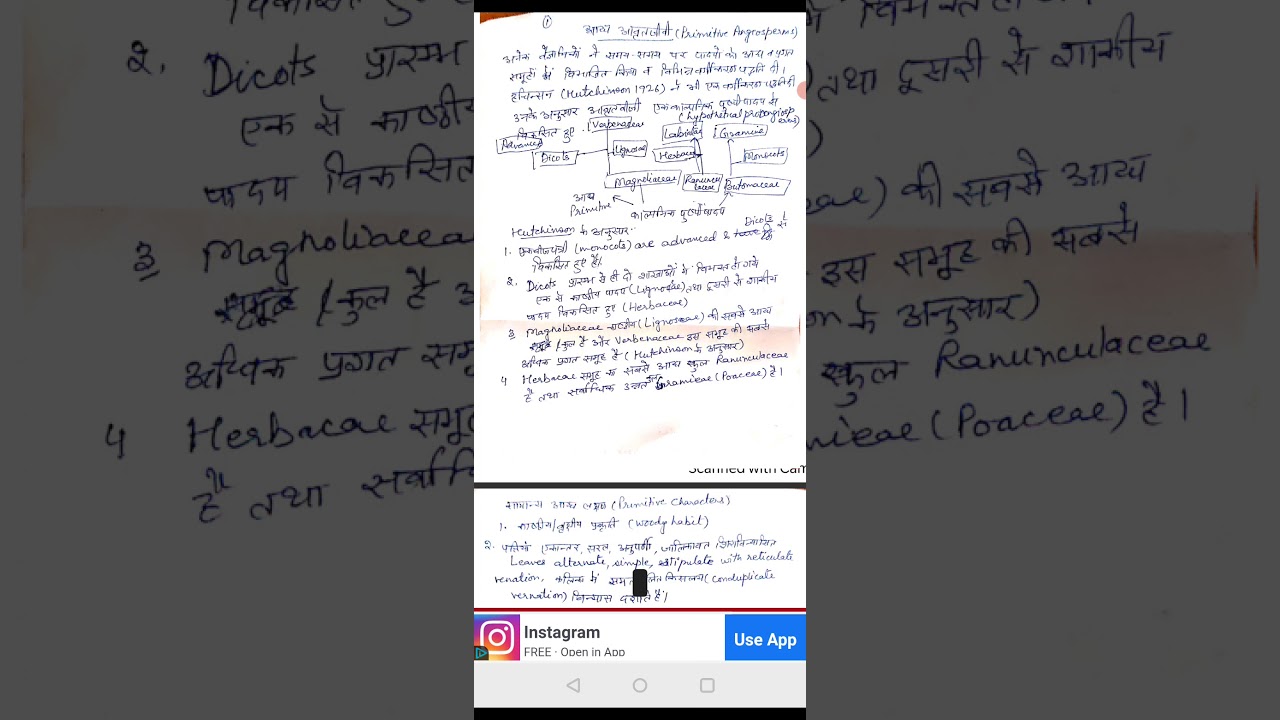 1
आद्य आवृतबीजी (Primitive Angiosperms)
अनेक वैज्ञानिकों ने समय-समय पर पादपों को आद्य व प्रगत
समूहों में विभाजित किया व विभिन्न वर्गीकरण पद्धति दी।
हचिन्सन (Hutchinson 1926) ने भी एक वर्गीकरण पद्धति दी
उनके अनुसार आवृतबीजी एक काल्पनिक पुष्पी पादप से
(hypothetical proangiosp
विकसित हुए.
Advanced
Verbenaceae
Labiatae
Gramineae
Dicots
Lignosae
Herbacae
Monocots
Magnoliaceae
Ranuncu
laceae
Butomaceae
आद्य
Primitive
काल्पनिक पुष्पी पादप
Hutchinson के अनुसार.
1. एकबीजपत्री (monocots) are advanced & Dicots से
विकसित हुए हैं।
2. Dicots प्रारम्भ से ही दो शाखाओं में विभक्त हो गये
एक से काष्ठीय पादप (Lignosae) तथा दूसरी से शाकीय
पादप विकसित हुए (Herbacae)
3 Magnoliaceae काष्ठीय (Lignosae) की सबसे आद्य
समूह / कुल है और Verbenaceae इस समूह की सबसे
अधिक प्रगत समूह है (Hutchinson के अनुसार)
4 Herbacae समूह का सबसे आद्य कुल Ranunculaceae
है तथा सर्वाधिक उन्नत कुल Gramieae (Poaceae) है।
Scanned with Cam
सामान्य आद्य लक्षण (Primitive Characters)
1. काष्ठीय/वृक्षीय प्रकृति (Woody habit)
2. पत्तियाँ एकान्तर, सरल, अनुपर्णी, जालिकावत शिराविन्यासित
Leaves alternate, simple, stipulate with reticulate
venation, कलिका में (conduplicate
vernation) विन्यास दर्शाते है।
Instagram
FREE · Open in App
Use App
2. Dicots प्रारम्भ
एक से काष्ठीय
पादप विकसित
3 Magnoliaceae
समूह / कुल है
अधिक प्रगत समू
4 Herbacae समू
है तथा सर्वाधि
तथा दूसरी से शाकीय
की सबसे आद्य
इस समूह की सबसे
के अनुसार)
कुल Ranunculaceae
(Poaceae) है।